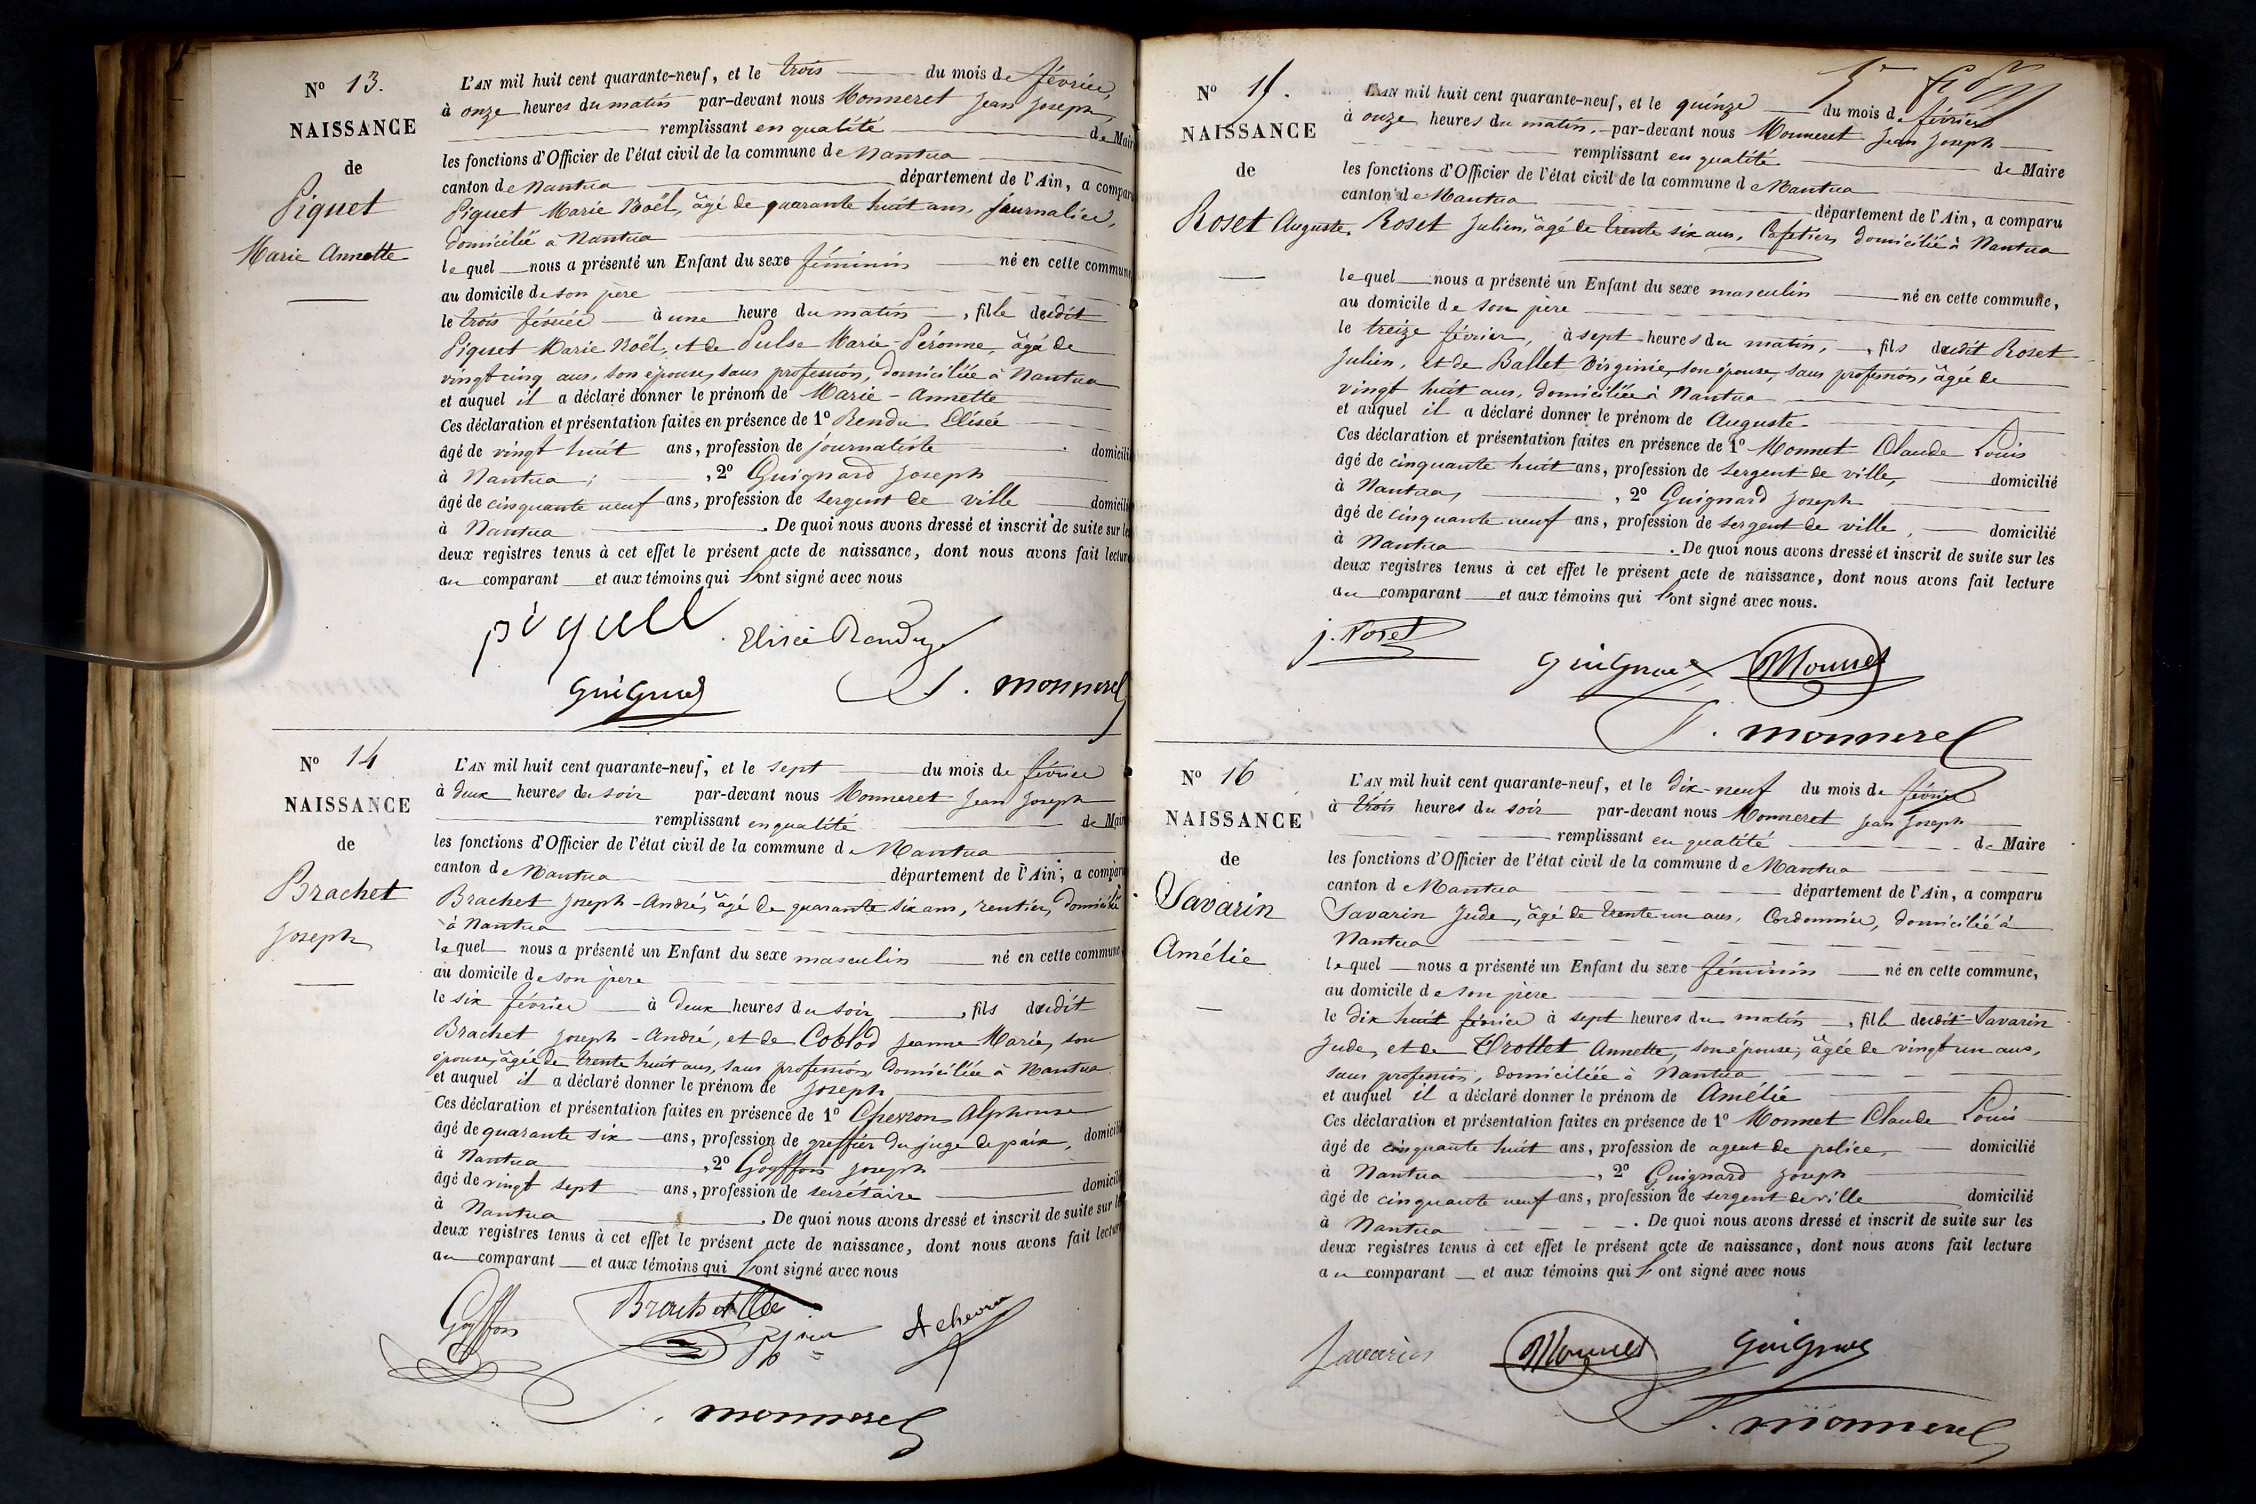 N° 13.
NAISSANCE
de
Piquet
Marie Annette
L'AN mil huit cent quarante-neuf, et le trois du mois de février,
à onze heures du matin par-devant nous Monneret Jean Joseph,
remplissant en qualité de Mair
les fonctions d'Officier de l'état civil de la commune de Nantua
canton de Nantua département de l'Ain, a compar
Piquet Marie Noël, âgé de quarante huit ans, journalier,
domicilié à Nantua
lequel nous a présenté un Enfant du sexe féminin né en cette commune
au domicile de son père
le trois février à une heure du matin, fille dudit
Piquet Marie Noël, et de Pulse Marie-Péronne, âgé de
vingt cinq ans, son épouse, sans profession, domiciliée à Nantua
et auquel il a déclaré donner le prénom de Marie-Annette
Ces déclaration et présentation faites en présence de 1° Rendu Elisée
âgé de vingt huit ans, profession de journaliste domicili
à Nantua; , 2° Guignard Joseph
âgé de cinquante neuf ans, profession de sergent de ville domicili
à Nantua. De quoi nous avons dressé et inscrit de suite sur les
deux registres tenus à cet effet le présent acte de naissance, dont nous avons fait lecture
au comparant et aux témoins qui l'ont signé avec nous
piquet Elisée Rendu
Guignard J. monneret
N° 14
NAISSANCE
de
Brachet
Joseph
L'AN mil huit cent quarante-neuf, et le sept du mois de février
à deux heures du soir par-devant nous Monneret Jean Joseph
remplissant en qualité de Mair
les fonctions d'Officier de l'état civil de la commune de Nantua
canton de Nantua département de l'Ain, a comparu
Brachet Joseph-André, âgé de quarante six ans, rentier, domicilié
à Nantua
lequel nous a présenté un Enfant du sexe masculin né en cette commune,
au domicile de son père
le six février à deux heures du soir, fils dudit
Brachet Joseph-André, et de Cobbod Jeanne Marie, son
épouse, âgée de trente huit ans, sans profession, domiciliée à Nantua
et auquel il a déclaré donner le prénom de Joseph
Ces déclaration et présentation faites en présence de 1° Chevron Alphonse
âgé de quarante six ans, profession de greffier du juge de paix, domicili
à Nantua , 2° Goyffon Joseph
âgé de vingt sept ans, profession de secrétaire domicili
à Nantua. De quoi nous avons dressé et inscrit de suite sur les
deux registres tenus à cet effet le présent acte de naissance, dont nous avons fait lecture
au comparant et aux témoins qui l'ont signé avec nous
Goyffon Brachet A chevron
J. monneret
N° 15.
NAISSANCE
de
Roset Auguste.
L'AN mil huit cent quarante-neuf, et le quinze du mois de février
à onze heures du matin, par-devant nous Monneret Jean Joseph
remplissant en qualité de Maire
les fonctions d'Officier de l'état civil de la commune de Nantua
canton de Nantua département de l'Ain, a comparu
Roset Julien, âgé de trente six ans, Cafetier, domicilié à Nantua
lequel nous a présenté un Enfant du sexe masculin né en cette commune,
au domicile de son père
le treize février, à sept heures du matin, fils dudit Roset
Julien, et de Ballet Virginie, son épouse, sans profession, âgée de
vingt huit ans, domiciliée à Nantua
et auquel il a déclaré donner le prénom de Auguste
Ces déclaration et présentation faites en présence de 1° Monnet Claude Louis
âgé de cinquante huit ans, profession de sergent de ville, domicilié
à Nantua, , 2° Guignard Joseph
âgé de cinquante neuf ans, profession de sergent de ville, domicilié
à Nantua. De quoi nous avons dressé et inscrit de suite sur les
deux registres tenus à cet effet le présent acte de naissance, dont nous avons fait lecture
au comparant et aux témoins qui l'ont signé avec nous.
j. Roset
Guignard Monnet
J. monneret
N° 16
NAISSANCE
de
Savarin
Amélie
L'AN mil huit cent quarante-neuf, et le dix-neuf du mois de février
à trois heures du soir par-devant nous Monneret Jean Joseph
remplissant en qualité de Maire
les fonctions d'Officier de l'état civil de la commune de Nantua
canton de Nantua département de l'Ain, a comparu
Savarin Jude, âgé de trente un ans, Cordonnier, domicilié à
Nantua
lequel nous a présenté un Enfant du sexe féminin né en cette commune,
au domicile de son père
le dix huit février à sept heures du matin, fille dudit Savarin
Jude, et de Trottet Annette, son épouse, âgée de vingt un ans,
sans profession, domiciliée à Nantua
et auquel il a déclaré donner le prénom de Amélie
Ces déclaration et présentation faites en présence de 1° Monnet Claude Louis
âgé de cinquante huit ans, profession de agent de police, domicilié
à Nantua , 2° Guignard Joseph
âgé de cinquante neuf ans, profession de sergent de ville domicilié
à Nantua. De quoi nous avons dressé et inscrit de suite sur les
deux registres tenus à cet effet le présent acte de naissance, dont nous avons fait lecture
au comparant et aux témoins qui l'ont signé avec nous
Savarin Monnet Guignard
J. monneret